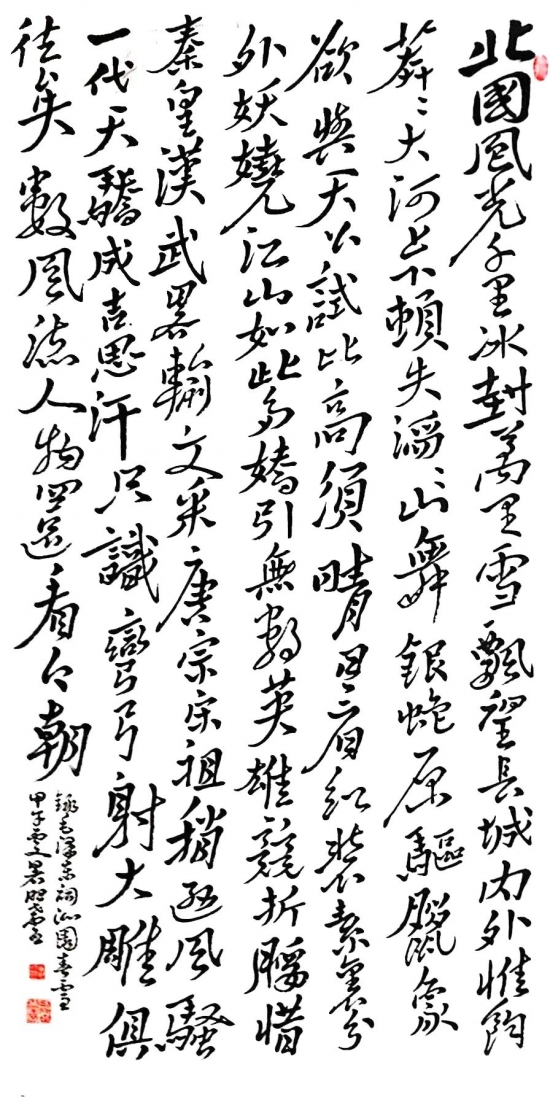 北國風光千里冰封萬里雪飄望長城內外惟餘
莽〻大河上下頓失滔〻山舞銀蛇原驅臘象
欲與天公試比高須晴日看紅裝素裹分
外妖嬈江山如此多嬌引無數英雄競折腰惜
秦皇漢武略輸文采唐宗宋祖稍遜風騷
一代天驕成吉思汗只識彎弓射大雕俱
往矣數風流人物還看今朝
錄毛澤東詞沁園春雪
甲午